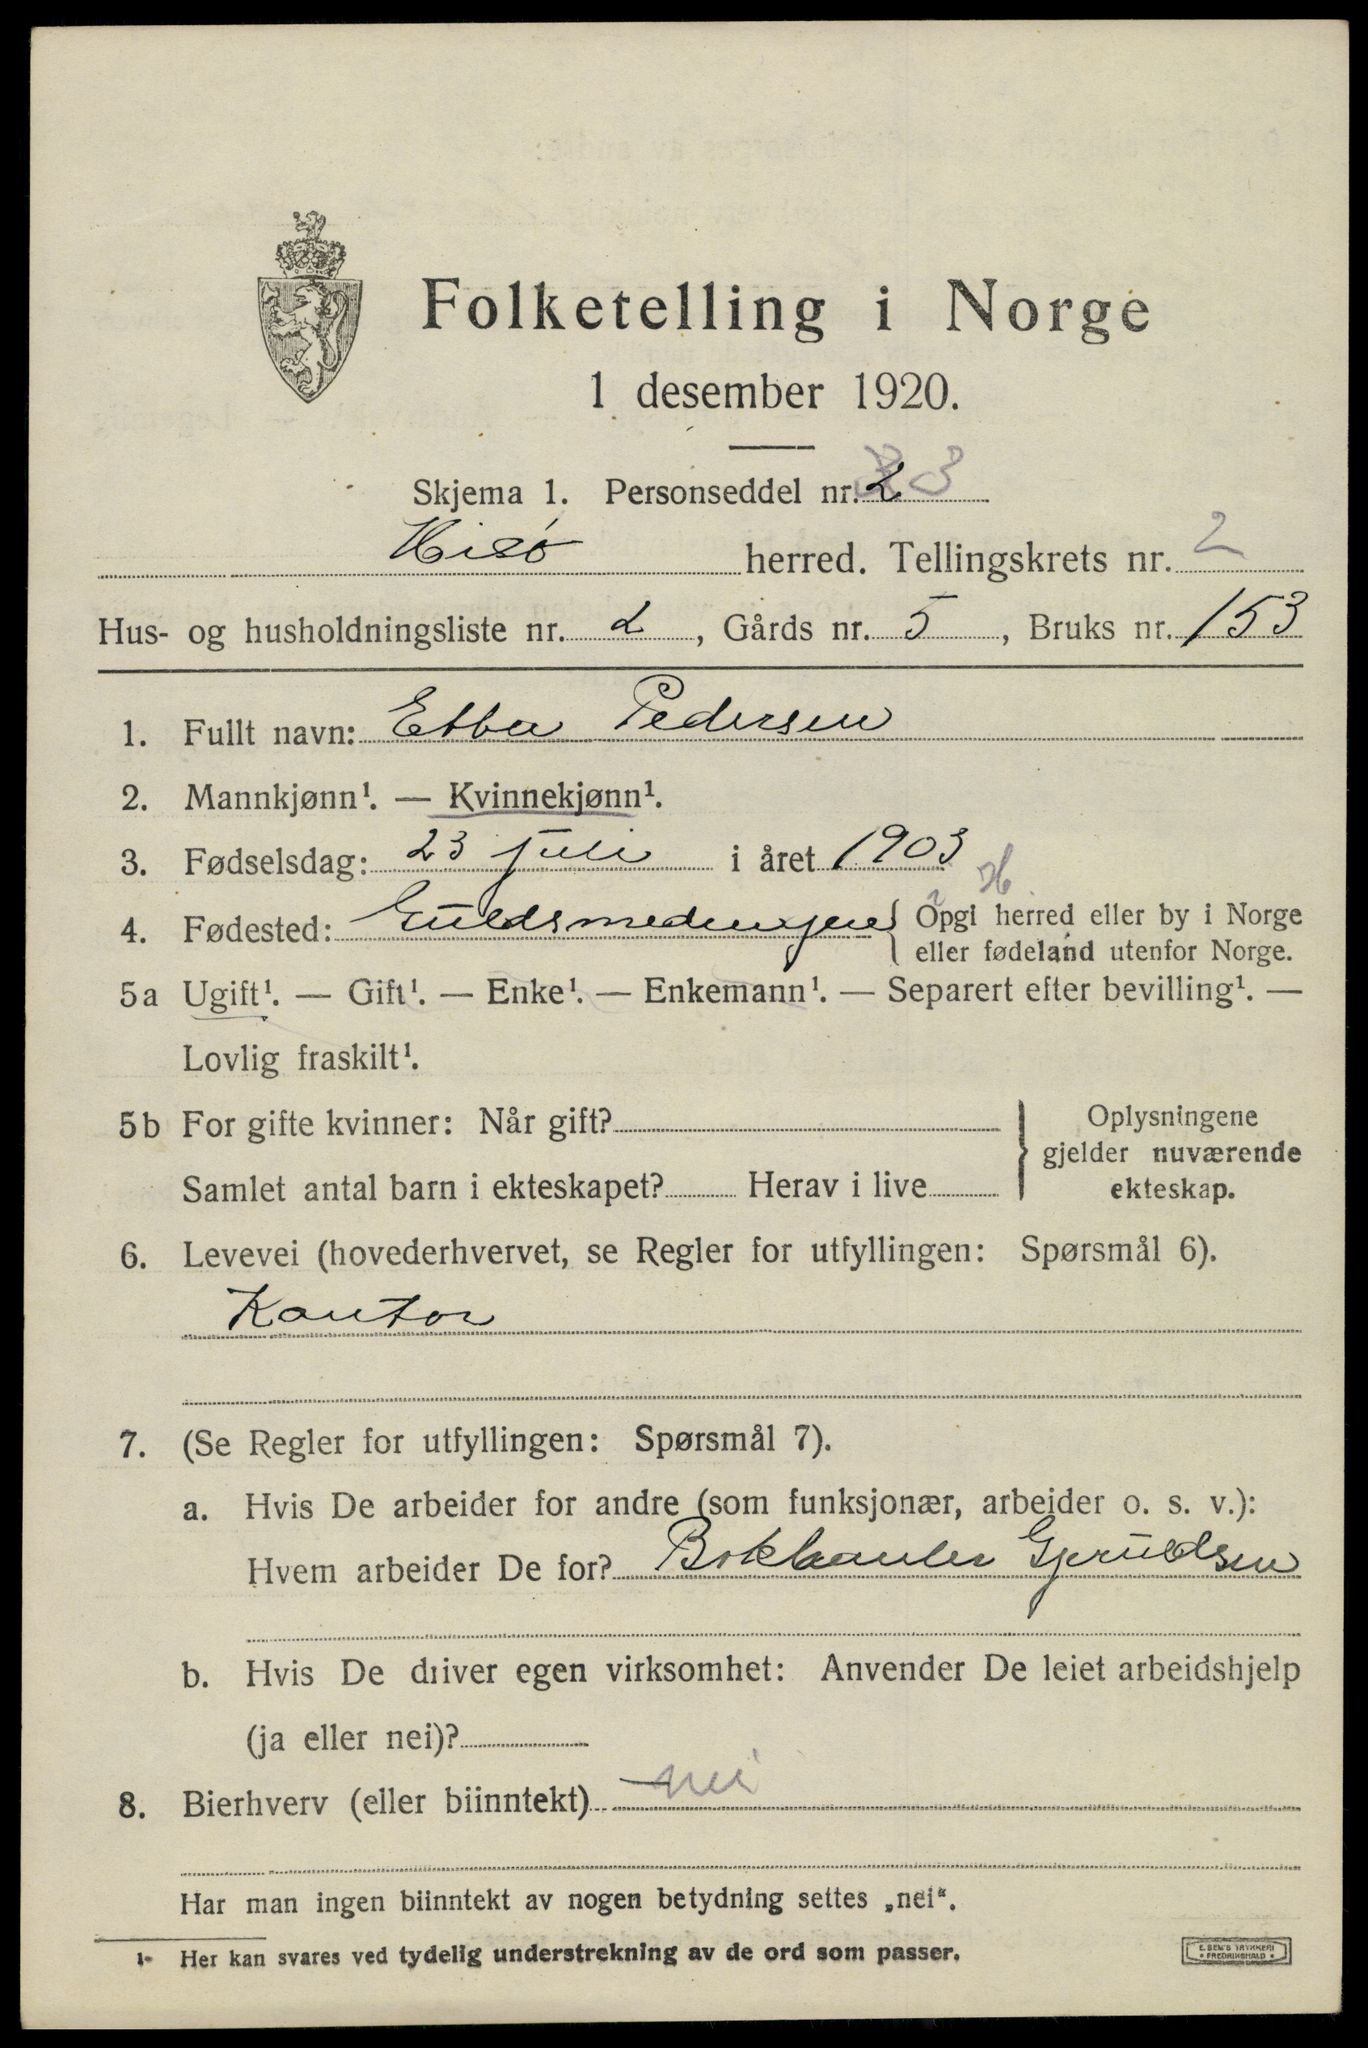 Folketelling i Norge
1 desember 1920.
Skjema 1. Personseddel nr. 2 3
Hisø herred. Tellingskrets nr. 2
Hus- og husholdningsliste nr. 2, Gårds nr. 5, Bruks nr. 153
1. Fullt navn: Ebba Pedersen
2. Mannkjønn¹. — Kvinnekjønn¹.
3. Fødselsdag: 23 juli i året 1903
4. Fødested: { Opgi herred eller by i Norge
eller fødeland utenfor Norge.
5a Ugift¹. — Gift¹. — Enke¹. — Enkemann¹. — Separert efter bevilling¹. —
Lovlig fraskilt¹.
5b For gifte kvinner: Når gift?
Samlet antal barn i ekteskapet? Herav i live
} Oplysningene
gjelder nuværende
ekteskap.
6. Levevei (hovederhvervet, se Regler for utfyllingen: Spørsmål 6).
Kontor
7. (Se Regler for utfyllingen: Spørsmål 7).
a. Hvis De arbeider for andre (som funksjonær, arbeider o. s. v.):
Hvem arbeider De for?
b. Hvis De driver egen virksomhet: Anvender De leiet arbeidshjelp
(ja eller nei)?
8. Bierhverv (eller biinntekt) nei
Har man ingen biinntekt av nogen betydning settes „nei“.
1- Her kan svares ved tydelig understrekning av de ord som passer.
E. SEM'S TRYKKERI
FREDRIKSHALD